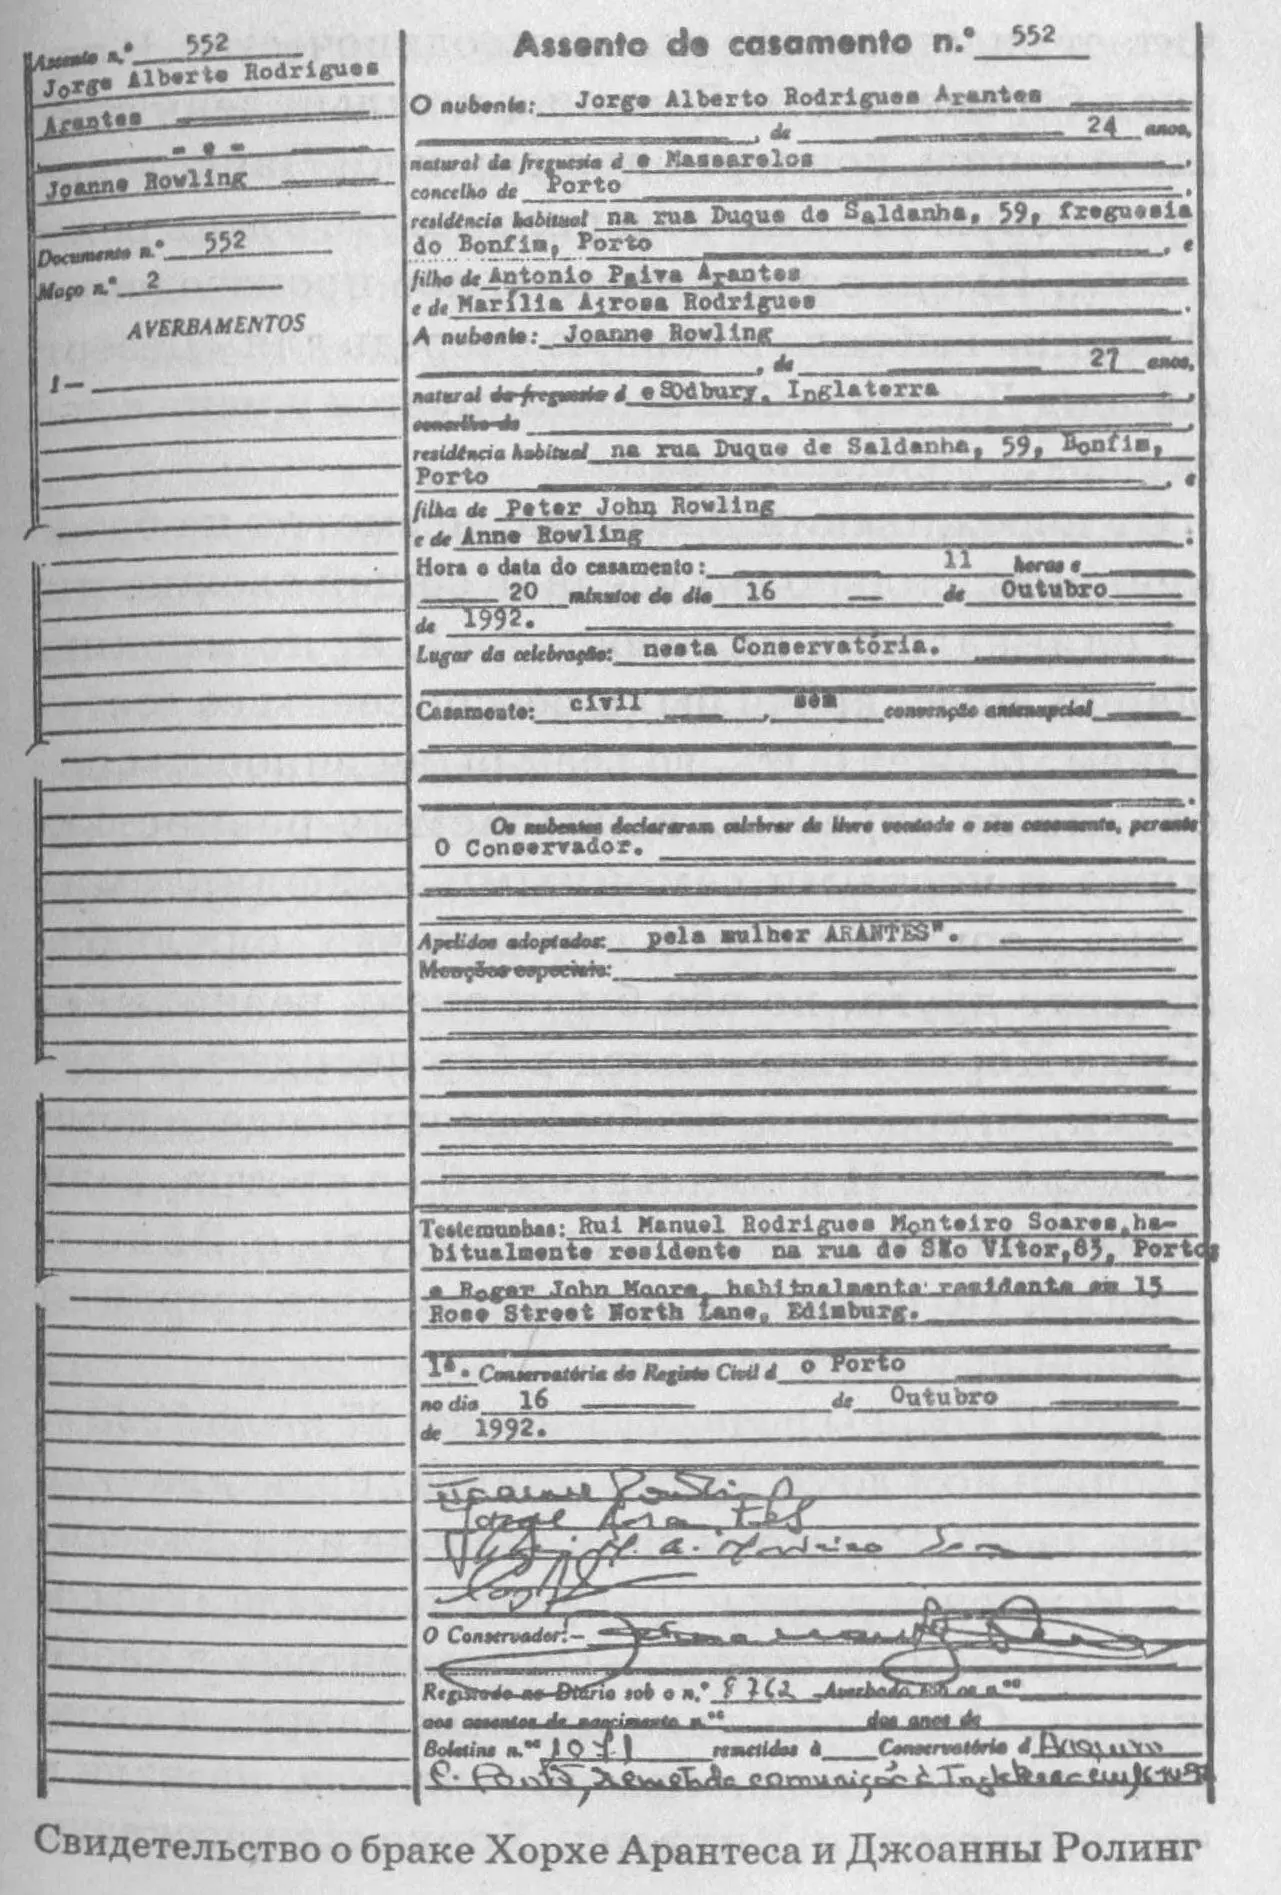 Assento n.º 552
Jorge Alberto Rodrigues
Arantes
- e -
Joanne Rowling
Documento n.º 552
Maço n.º 2
AVERBAMENTOS
1 —
Assento de casamento n.º 552
O nubente: Jorge Alberto Rodrigues Arantes
, de 24 anos,
natural da freguesia d e Massarelos ,
concelho de Porto ,
residência habitual na rua Duque de Saldanha, 59, freguesia
do Bonfim, Porto , e
filho de Antonio Paiva Arantes
e de Marília Airosa Rodrigues .
A nubente: Joanne Rowling
, de 27 anos,
natural da freguesia d e SOdbury, Inglaterra ,
concelho de ,
residência habitual na rua Duque de Saldanha, 59, Bonfim,
Porto , e
filha de Peter John Rowling
e de Anne Rowling .
Hora e data do casamento: 11 horas e
20 minutos do dia 16 de Outubro
de 1992.
Lugar da celebração: nesta Conservatória.
Casamento: civil , sem convenção antenupcial
.
Os nubentes declararam celebrar de livre vontade o seu casamento, perante
O Conservador.
Apelidos adoptados: pela mulher ARANTES".
Menções especiais:
Testemunhas: Rui Manuel Rodrigues Monteiro Soares, ha-
bitualmente residente na rua de São Vítor, 83, Porto;
e Roger John Moore, habitualmente residente em 15
Rose Street North Lane, Edimburg.
1ª. Conservatória do Registo Civil d o Porto
no dia 16 de Outubro
de 1992.
Joanne Rowling
Jorge Arantes
O Conservador:—
Registado no Diário sob o n.º 8762 Averbado sob os n.ºˢ
aos assentos de nascimento n.ºˢ dos anos de
Boletins n.ºˢ 1071 remetidos à Conservatória d
Свидетельство о браке Хорхе Арантеса и Джоанны Ролинг